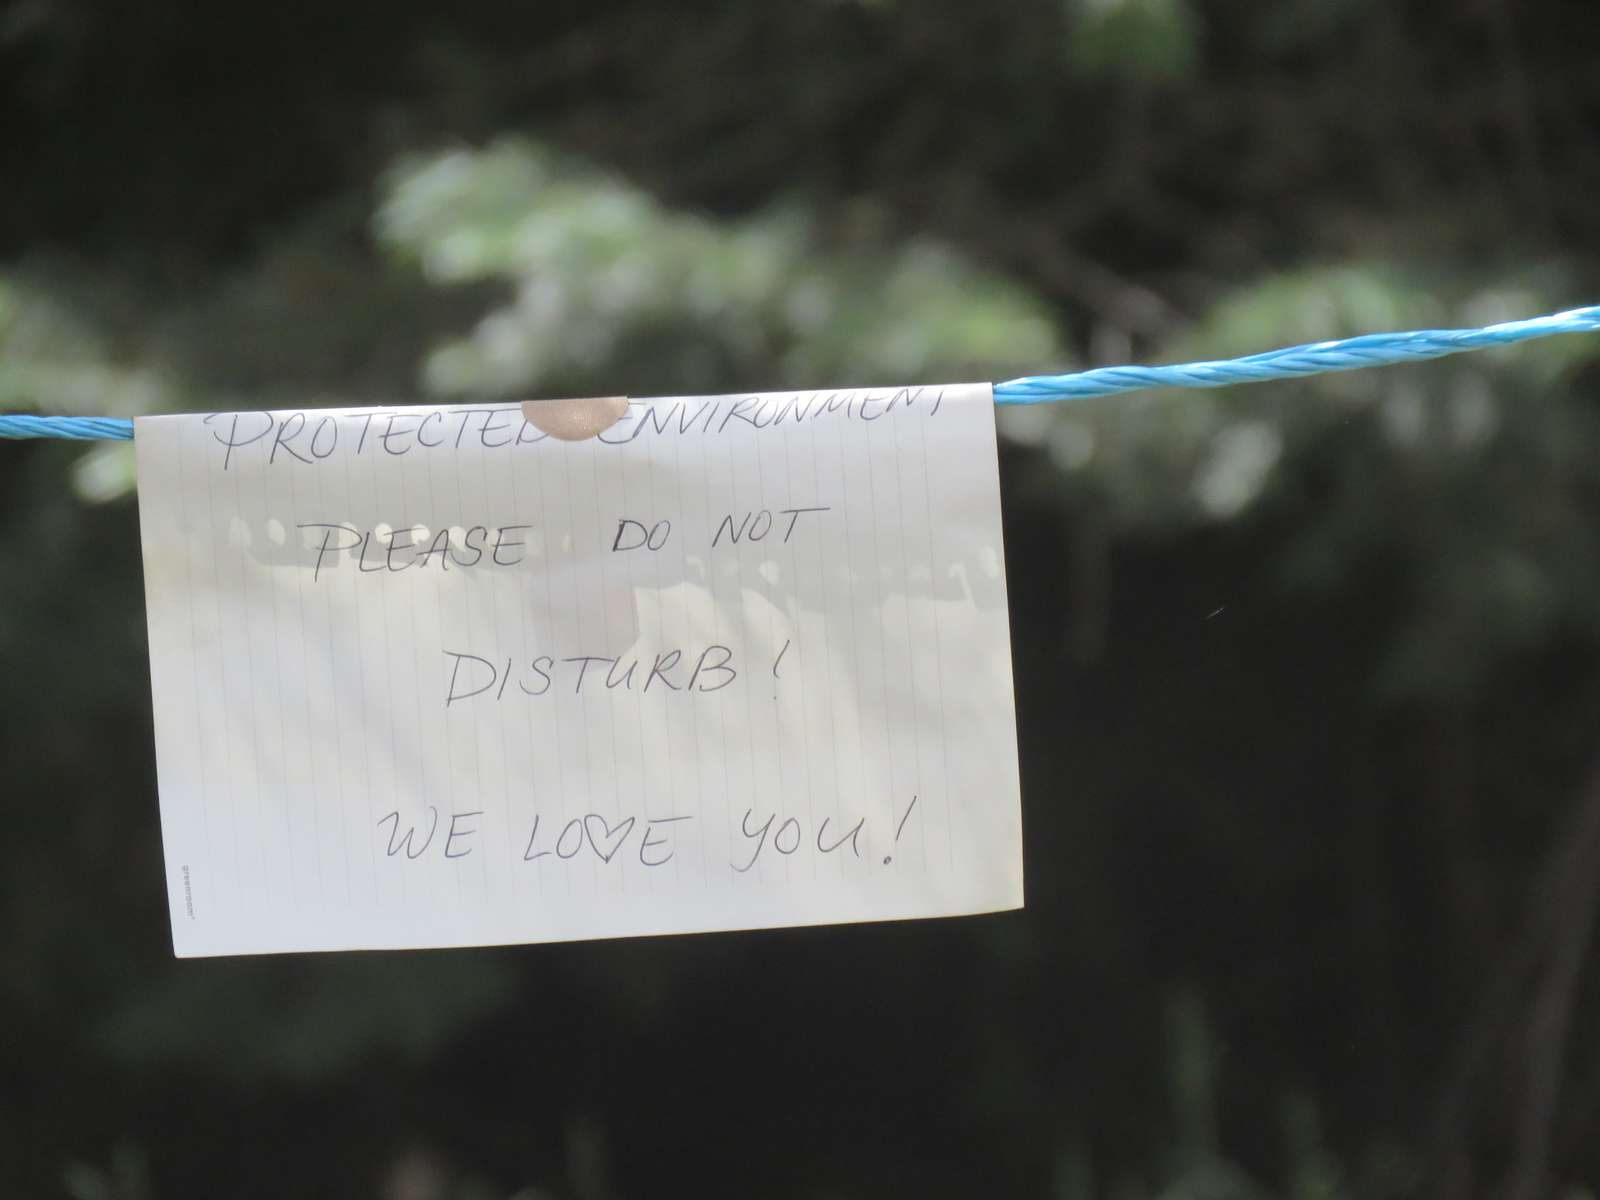 PROTECTED ENVIRONMENT
PLEASE DO NOT
DISTURB!
WE LO♡E YOU!
greenroom